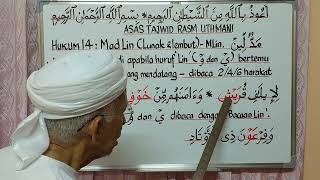 اعوذ بالله من الشيطان الرجيم * بسم الله الرحمن الرحيم
ASAS TAJWID RASM UTHMANI
HUKUM 14: Mad Lin (Lunak & lembut) - مدلين. MLin.
di apabila huruf 'Lin' (و dan ي) bertemu
mendatang - dibaca 2/4/6 harakat
لإيلاف قريش * وءامنهم من خوف
و dan ي dibaca dengan Bacaan Lin'.
وفرعون ذي أوتاد